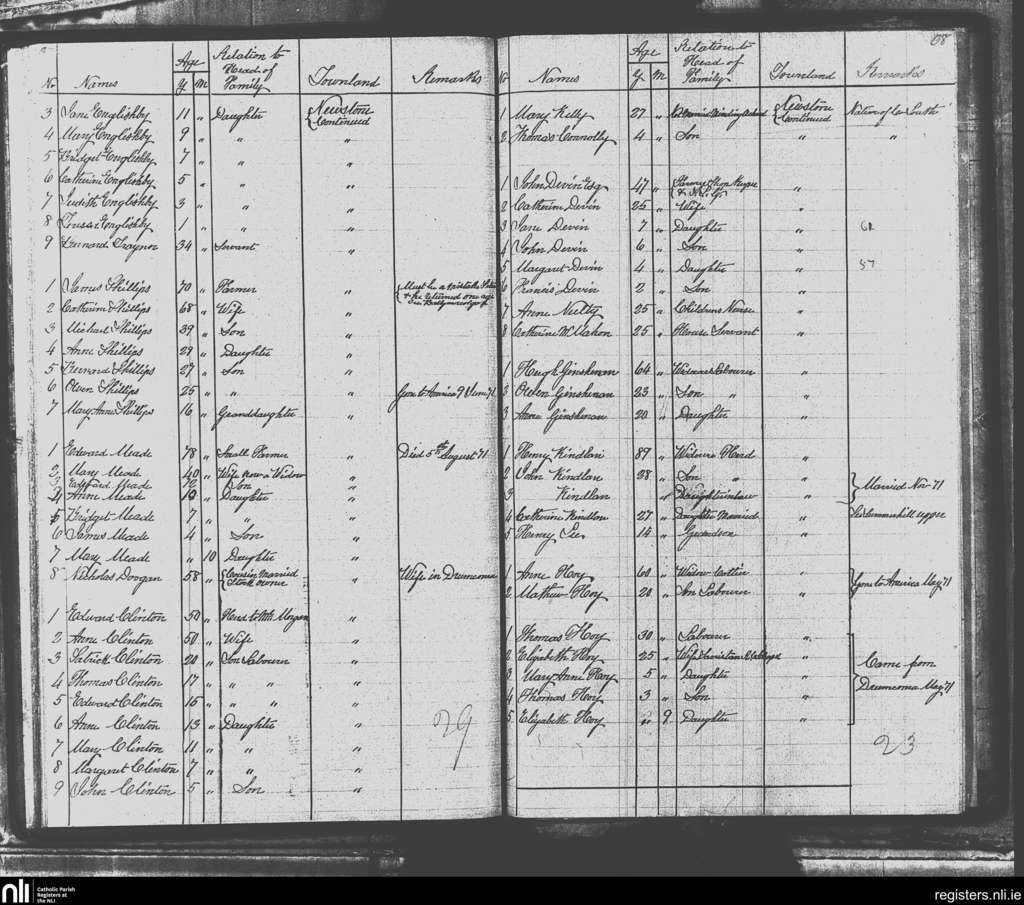 No Names Age Y M Relation to Head of Family Townland Remarks
3 Jane Englishby 11 " Daughter Newstone Continued
4 Mary Englishby 9 " " "
5 Bridget Englishby 7 " " "
6 Catherine Englishby 5 " " "
7 Judith Englishby 3 " " "
8 Englishby 1 " " "
9 Bernard Traynor 34 " Servant "
1 James Phillips 70 " Farmer " Must be a mistake
2 Catherine Phillips 68 " Wife "
3 Michael Phillips 39 " Son "
4 Anne Phillips 29 " Daughter "
5 Bernard Phillips 27 " Son "
6 Owen Phillips 25 " " " Gone to America 71
7 Mary Anne Phillips 16 " Granddaughter "
1 Edward Meade 78 " Small Farmer " Died 5th August 71
2 Mary Meade 40 " Wife now a Widow "
3 Edward Meade 12 " Son "
4 Anne Meade 10 " Daughter "
5 Bridget Meade 7 " " "
6 James Meade 4 " Son "
7 Mary Meade " 10 Daughter "
8 Nicholas Doogan 58 " Cousin Married " Wife in Drumconra
1 Edward Clinton 50 " Herd to Mr Morgan "
2 Anne Clinton 50 " Wife "
3 Patrick Clinton 20 " Son Labourer "
4 Thomas Clinton 17 " " " "
5 Edward Clinton 15 " " " "
6 Anne Clinton 13 " Daughter "
7 Mary Clinton 11 " " "
8 Margaret Clinton 7 " " "
9 John Clinton 5 " Son "
29
68
No Names Age Y M Relation to Head of Family Townland Remarks
1 Mary Kelly 27 " Newstone Continued Native of Co Louth
2 Thomas Connolly 4 " Son " "
1 John Devin Esq 47 " Farmer Shop Keeper "
2 Catherine Devin 25 " Wife "
3 Jane Devin 7 " Daughter "
4 John Devin 6 " Son "
5 Margaret Devin 4 " Daughter " 57
6 Francis Devin 2 " Son "
7 Anne Nulty 25 " Childrens Nurse "
8 Catherine McMahon 25 " House Servant "
1 Hugh Ginshenan 64 " Widower Labourer "
2 Owen Ginshenan 23 " Son " "
3 Anne Ginshenan 20 " Daughter "
1 Henry Kindlan 89 " Widower Herd "
2 John Kindlan 38 " Son " "
3 Kindlan " Daughter in law " Married Nov 71
4 Catherine Kindlan 27 " Daughter Married " Summerhill upper
5 Henry 14 " Grandson "
1 Anne Hoy 60 " Widow " Gone to America May 71
2 Mathew Hoy 20 " Son Labourer "
1 Thomas Hoy 30 " Labourer "
2 Elizabeth Hoy 25 " Wife "
3 Mary Anne Hoy 5 " Daughter " Came from
4 Thomas Hoy 3 " Son " Drumconra May 71
5 Elizabeth Hoy " 9 Daughter "
23
nli Catholic Parish Registers at the NLI
registers.nli.ie